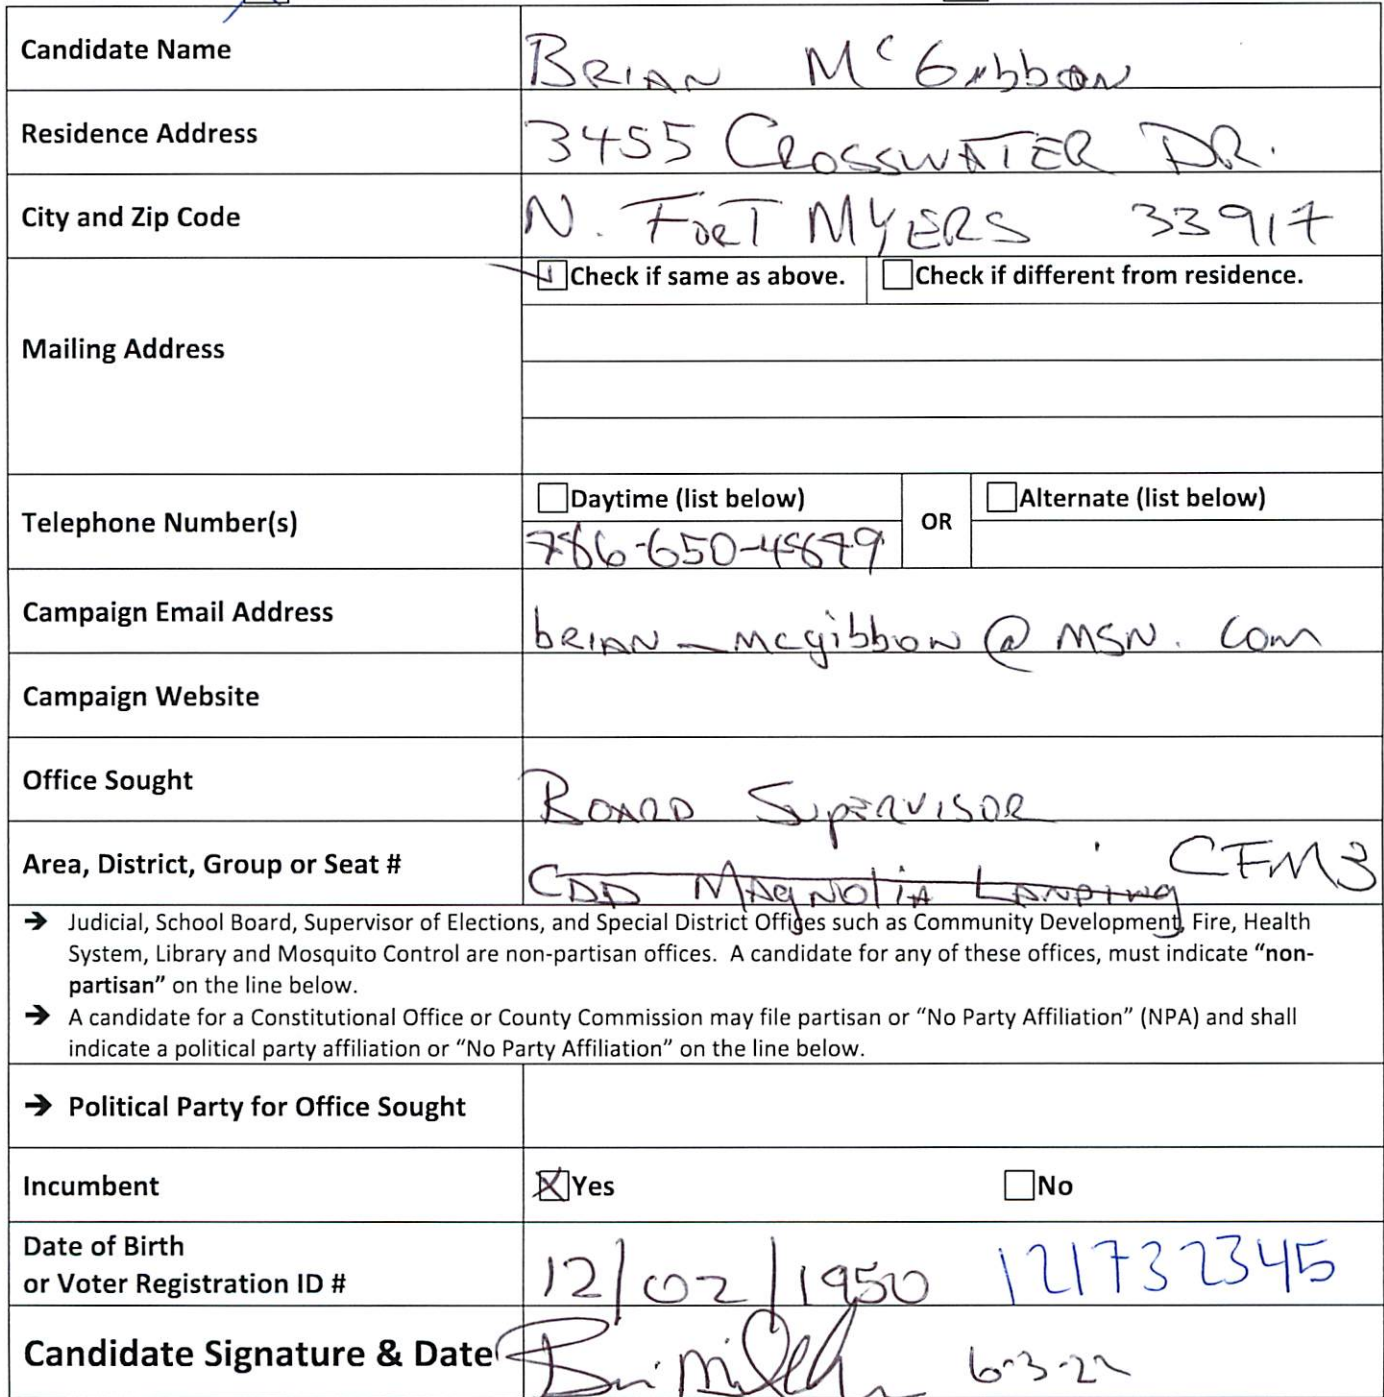 Candidate Name BRIAN McGibbon
Residence Address 3455 CROSSWATER DR.
City and Zip Code N. FORT MYERS 33917
Check if same as above. Check if different from residence.
Mailing Address
Daytime (list below) OR Alternate (list below)
Telephone Number(s) 786-650-4879
Campaign Email Address bRIAN_mcgibbon@MSN.com
Campaign Website
Office Sought BOARD SUPERVISOR
Area, District, Group or Seat # CDD MAgNOliA LANDINg CFM3
→ Judicial, School Board, Supervisor of Elections, and Special District Offices such as Community Development, Fire, Health
System, Library and Mosquito Control are non-partisan offices. A candidate for any of these offices, must indicate “non-
partisan” on the line below.
→ A candidate for a Constitutional Office or County Commission may file partisan or “No Party Affiliation” (NPA) and shall
indicate a political party affiliation or “No Party Affiliation” on the line below.
→ Political Party for Office Sought
Incumbent X Yes No
Date of Birth
or Voter Registration ID # 12/02/1950 121732345
Candidate Signature & Date 6-3-22